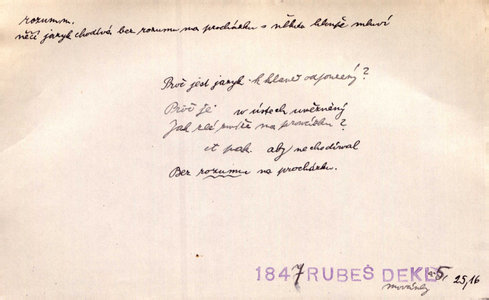 rozumu.
něčí jazyk chodívá bez rozumu na procházku = někdo hloupě mluví
Proč jest jazyk k hlavě odpouzený?
Proč je w ústech uwězněný
Jak zlé zwíře na prowázku?
et pak. aby nechodíwal
Bez rozumu na procházku.
1847 RUBEŠ DEKL 5, 25,16